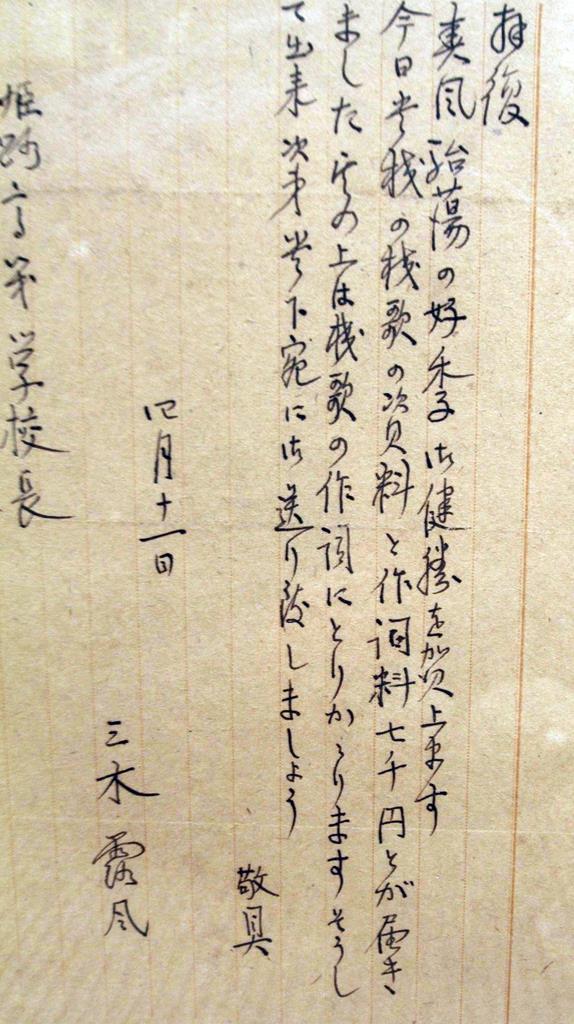 拝復
爽風駘蕩の好季御健勝を賀上ます
今日貴校の校歌の資料と作詞料七千円とが届き
ました 其の上は校歌の作詞にとりかゝりますそうし
て出来次第貴下宛に御送り致しましょう
敬具
四月十一日
三木露風
姫路高等学校長